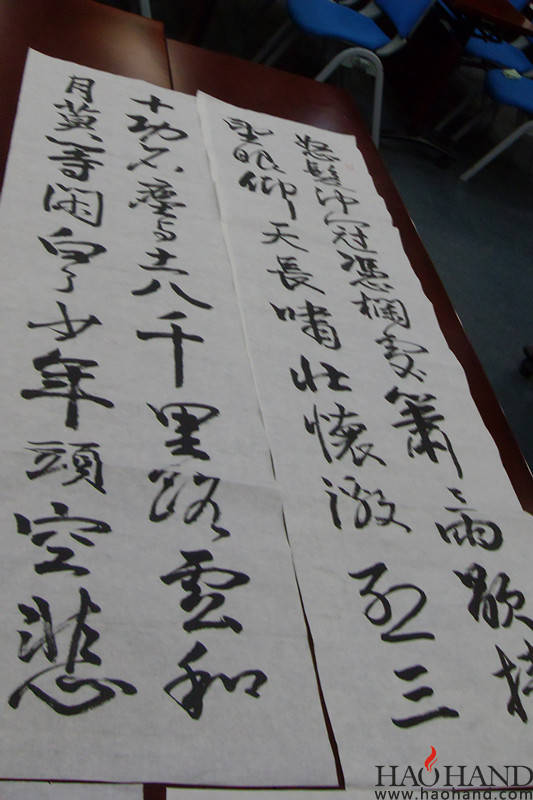 怒髮冲冠憑欄處蕭〻雨歇抬
望眼仰天長嘯壯懷激烈三
十功名塵与土八千里路雲和
月莫等閑白了少年頭空悲
HAOHAND
www.haohand.com